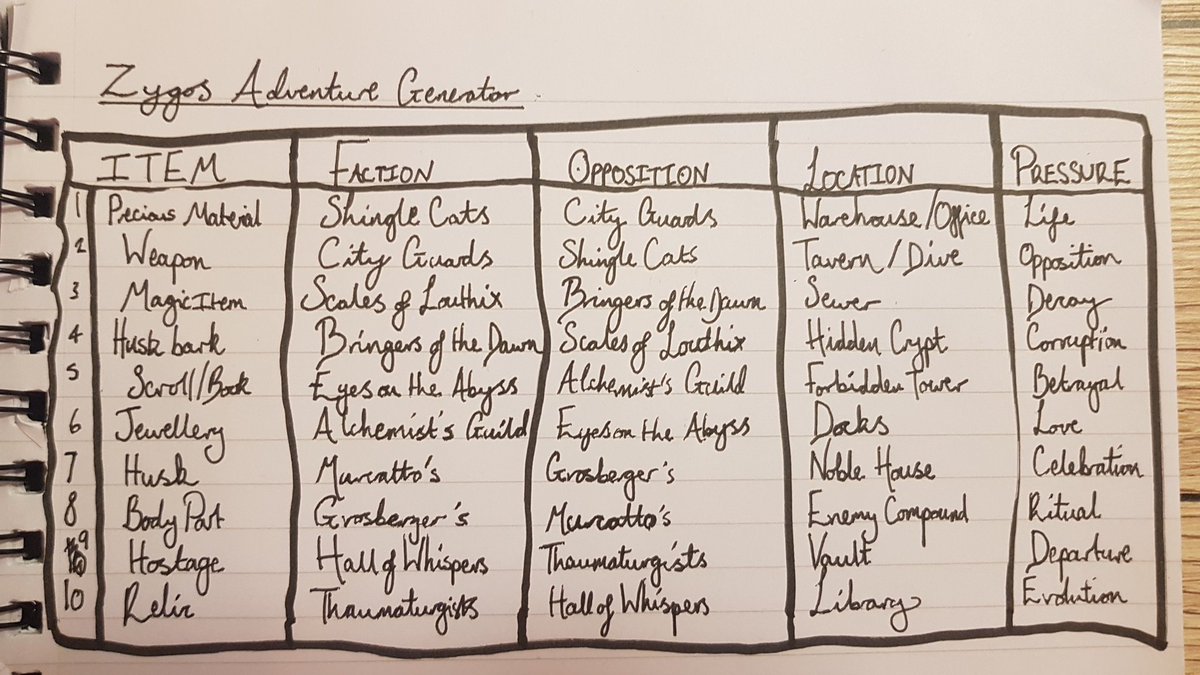 Zygos Adventure Generator
ITEM FACTION OPPOSITION LOCATION PRESSURE
1 Precious Material Shingle Cats City Guards Warehouse/Office Life
2 Weapon City Guards Shingle Cats Tavern/Dive Opposition
3 Magic Item Scales of Louthix Bringers of the Dawn Sewer Decay
4 Husk bark Bringers of the Dawn Scales of Louthix Hidden Crypt Corruption
5 Scroll/Book Eyes on the Abyss Alchemist's Guild Forbidden Tower Betrayal
6 Jewellery Alchemist's Guild Eyes on the Abyss Docks Love
7 Husk Murcatto's Grosberger's Noble House Celebration
8 Body Part Grosberger's Murcatto's Enemy Compound Ritual
9 Hostage Hall of Whispers Thaumaturgists Vault Departure
10 Relic Thaumaturgists Hall of Whispers Library Evolution